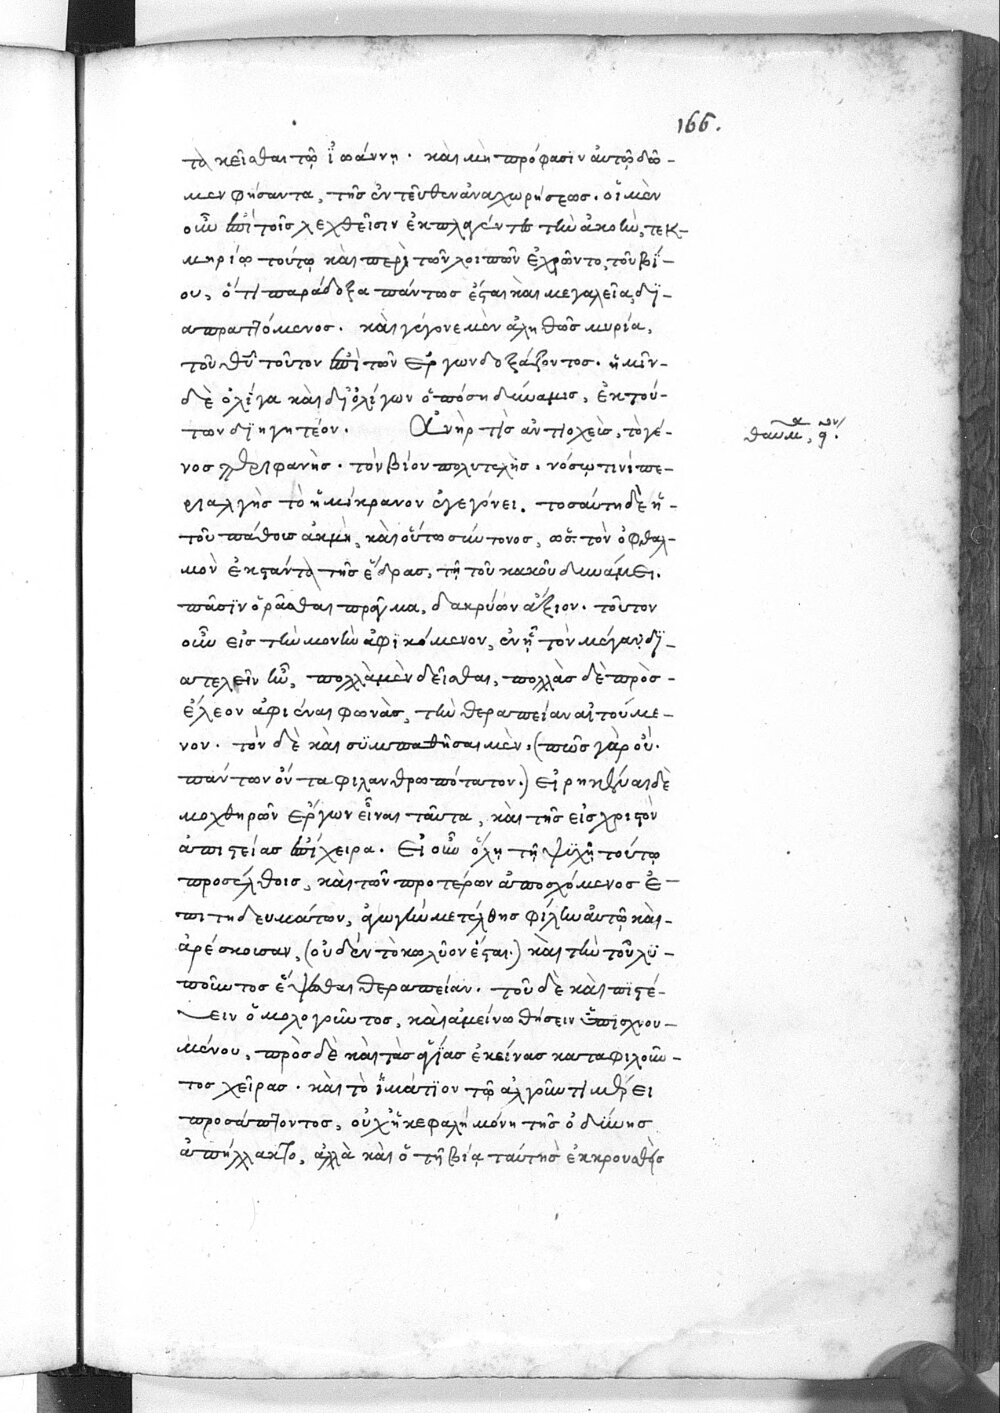 166.
τὸ κεῖσθαι τῷ ἰωάννῃ. καὶ μὴ πρόφασιν αὐτῷ δῶ-
μεν φήσαντα, τῆς ἐντεῦθεν ἀναχωρήσεως. οἱ μὲν
οὖν ἐπὶ τοῖς λεχθεῖσιν ἐκπλαγέντες τὴν ἀκοὴν, τεκ-
μηρίῳ τούτῳ καὶ περὶ τῶν λοιπῶν ἐχρῶντο, τοῦ βί-
ου, ὅτι παράδοξα πάντως ἔσται καὶ μεγαλεῖα, δι-
απραττόμενος. καὶ γέγονε μὲν ἀληθῶς μυρία,
τοῦ θεοῦ τοῦτον ἐπὶ τῶν ἔργων δοξάζοντος. ἡμῖν
δὲ ὀλίγα καὶ δι' ὀλίγων ὁπόση δύναμις, ἐκ τού-
των διηγητέον. Ἀνὴρ τὶς ἀντιοχεὺς, τὸ γέ-
θαυμα, ον.
νος περιφανὴς. τὸν βίον πολυτελὴς. νόσῳ τινὶ πε-
ριαλγὴς τὸ ἡμίκρανον ἐγεγόνει. τοσαύτη δὲ ἡ
τοῦ πάθους ἀκμὴ, καὶ οὕτω σύντονος, ὥστε τὸν ὀφθαλ-
μὸν ἐκστάντα τῆς ἕδρας, τῇ τοῦ κακοῦ δυνάμει.
πᾶσιν ὁρᾶσθαι πρᾶγμα, δακρύων ἄξιον. τοῦτον
οὖν εἰς τὴν μονὴν ἀφικόμενον, ἐν ᾗ τὸν μέγαν δι-
ατελεῖν ἦν, πολλὰ μὲν δεῖσθαι, πολλὰς δὲ πρὸς
ἔλεον ἀφιέναι φωνὰς, τὴν θεραπείαν αἰτούμε-
νον. τὸν δὲ καὶ συμπαθῆσαι μὲν, (πῶς γὰρ οὔ.
πάντων ὄντα φιλανθρωπότατον.) εἰρηκέναι δὲ
μοχθηρῶν ἔργων εἶναι ταῦτα, καὶ τῆς εἰς χριστὸν
ἀπιστείας ἐπίχειρα. Εἰ οὖν ὅλῃ τῇ ψυχῇ τούτῳ
προσέλθοις, καὶ τῶν προτέρων ἀποσχόμενος ἐ-
πιτηδευμάτων, ἀγωγὴν μετέλθῃς φίλην αὐτῷ καὶ
ἀρέσκουσαν, (οὐδέν τὸ κωλῦον ἔσται.) καὶ τὴν τοῦ λυ-
ποῦντος ἕψεσθαι θεραπείαν. τοῦ δὲ καὶ πιστέ-
υειν ὁμολογοῦντος, καὶ ἀμείνω θήσειν ὑπισχνου-
μένου, πρὸς δὲ καὶ τὰς ἁγίας ἐκείνας καταφιλοῦν-
τος χεῖρας. καὶ τὸ ἱμάτιον τῷ ἀλγοῦντι μέρει
προσάπτοντος, οὐχ ἡ κεφαλὴ μόνη τῆς ὀδύνης
ἀπήλλακτο, ἀλλὰ καὶ ὁ τῇ βίᾳ ταύτης ἐκκρουσθεὶς